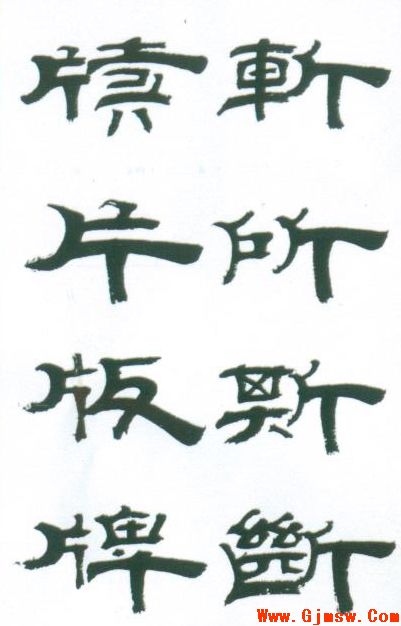 斬所斯斷
牘片版牌
Www.Gjmsw.Com